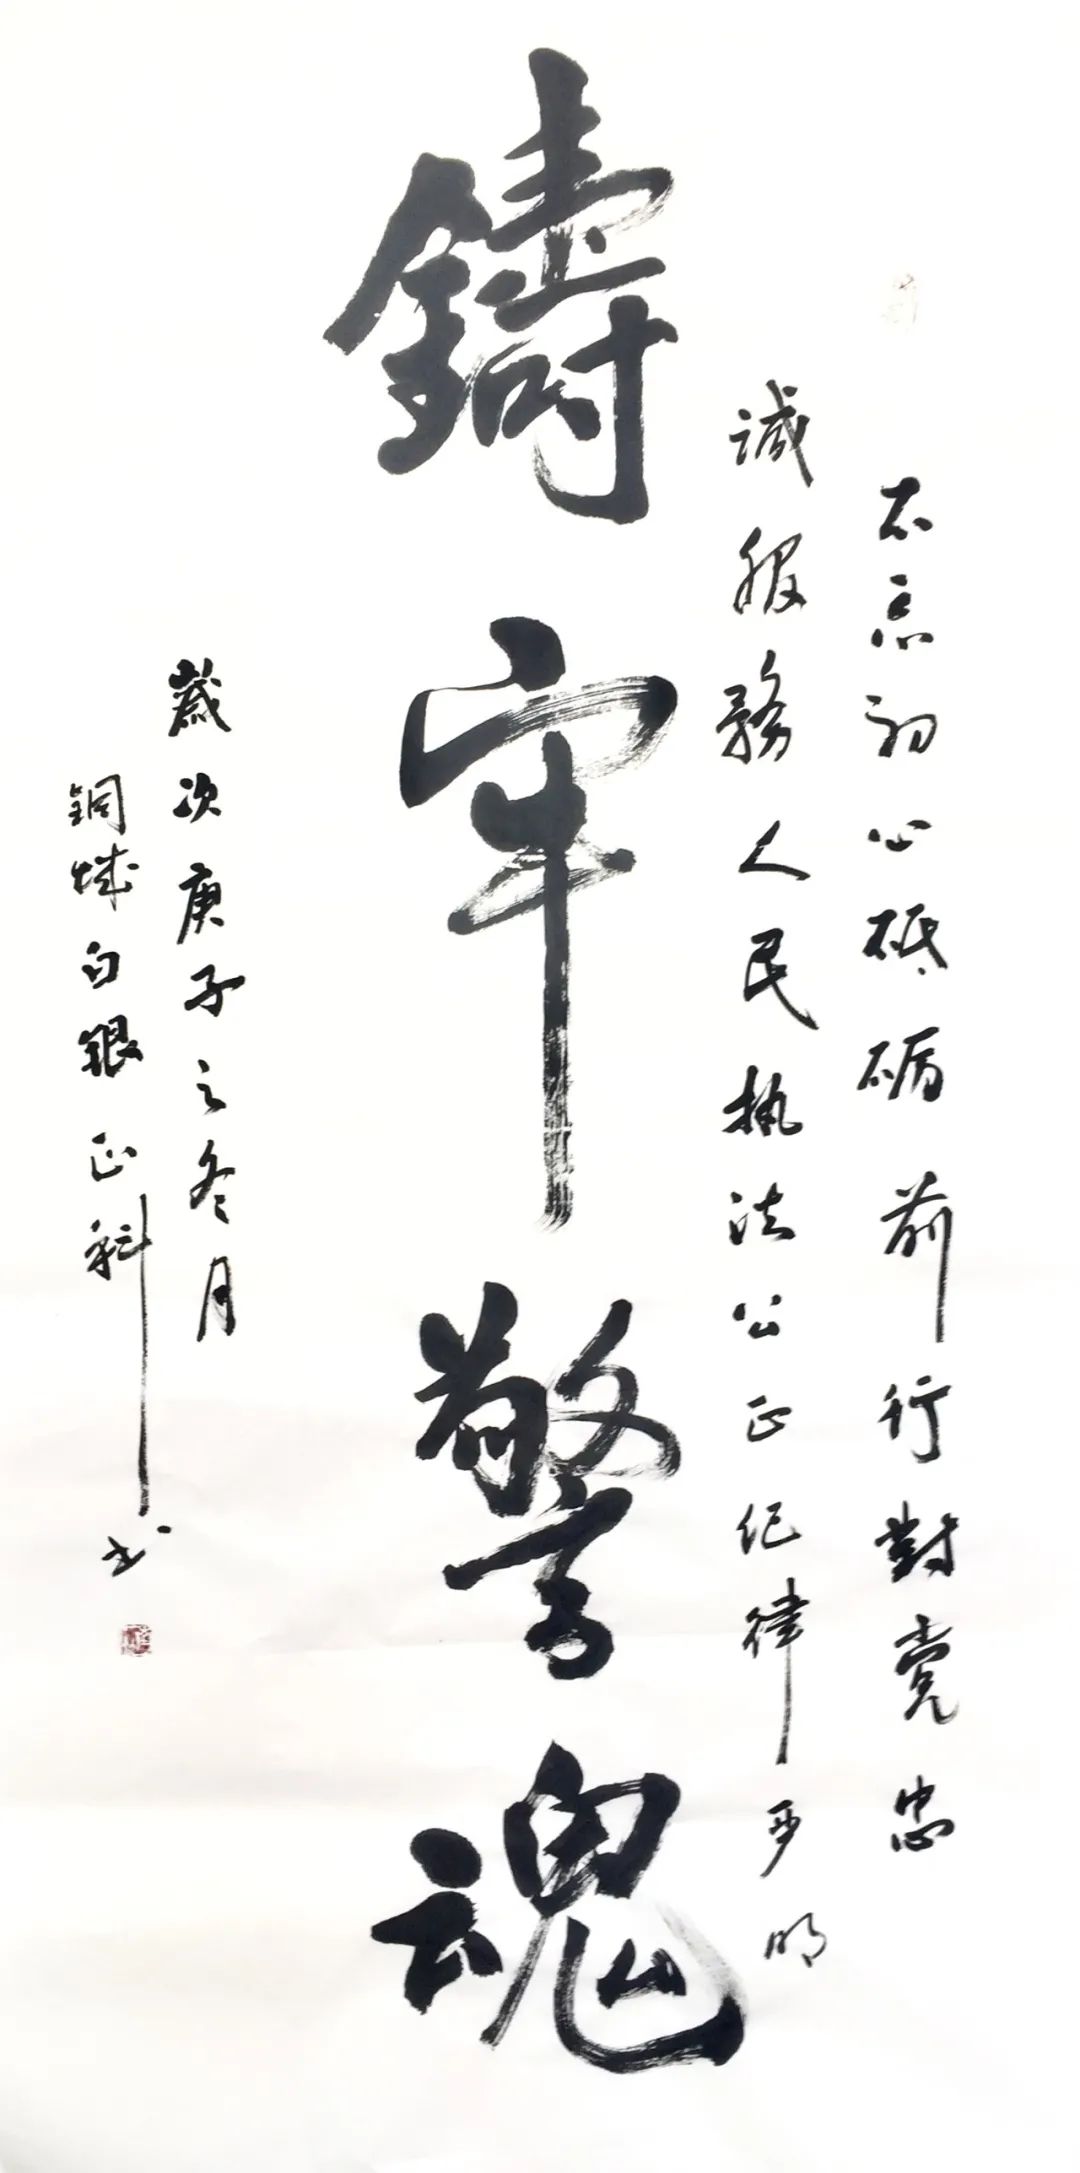 不忘初心砥砺前行對党忠
诚服務人民执法公正纪律严明
鑄牢警魂
歲次庚子之冬月
銅城白銀正科书